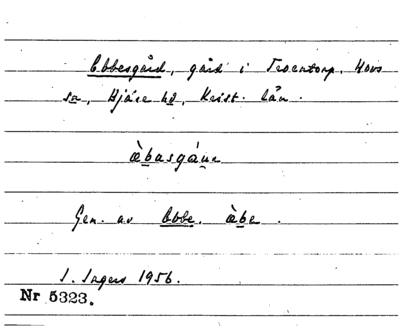 Ebbesgård, gård i Troentorp, Hovs
sn, Bjäre hd, Krist. län.
æ̀basgá̀ṇ
Gen. av Ebbe. æ̀be.
I. Ingers 1956.
Nr 5323.